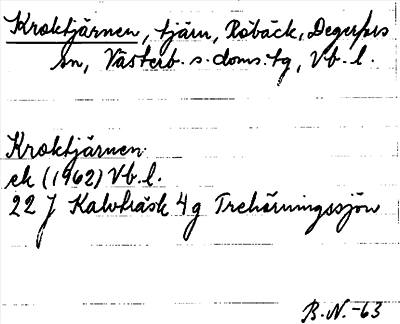 Kroktjärnen, tjärn, Röbäck, Degerfors
sn, Västerb. s. doms. tg, Vb. l.
Kroktjärnen
ek (1962) Vb. l.
22 J Kalvträsk 4 g Trehörningssjön
B. N. -63